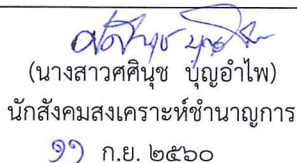 (นางสาวศศินุช บุญอำไพ)
นักสังคมสงเคราะห์ชำนาญการ
๑๑ ก.ย. ๒๕๖๐